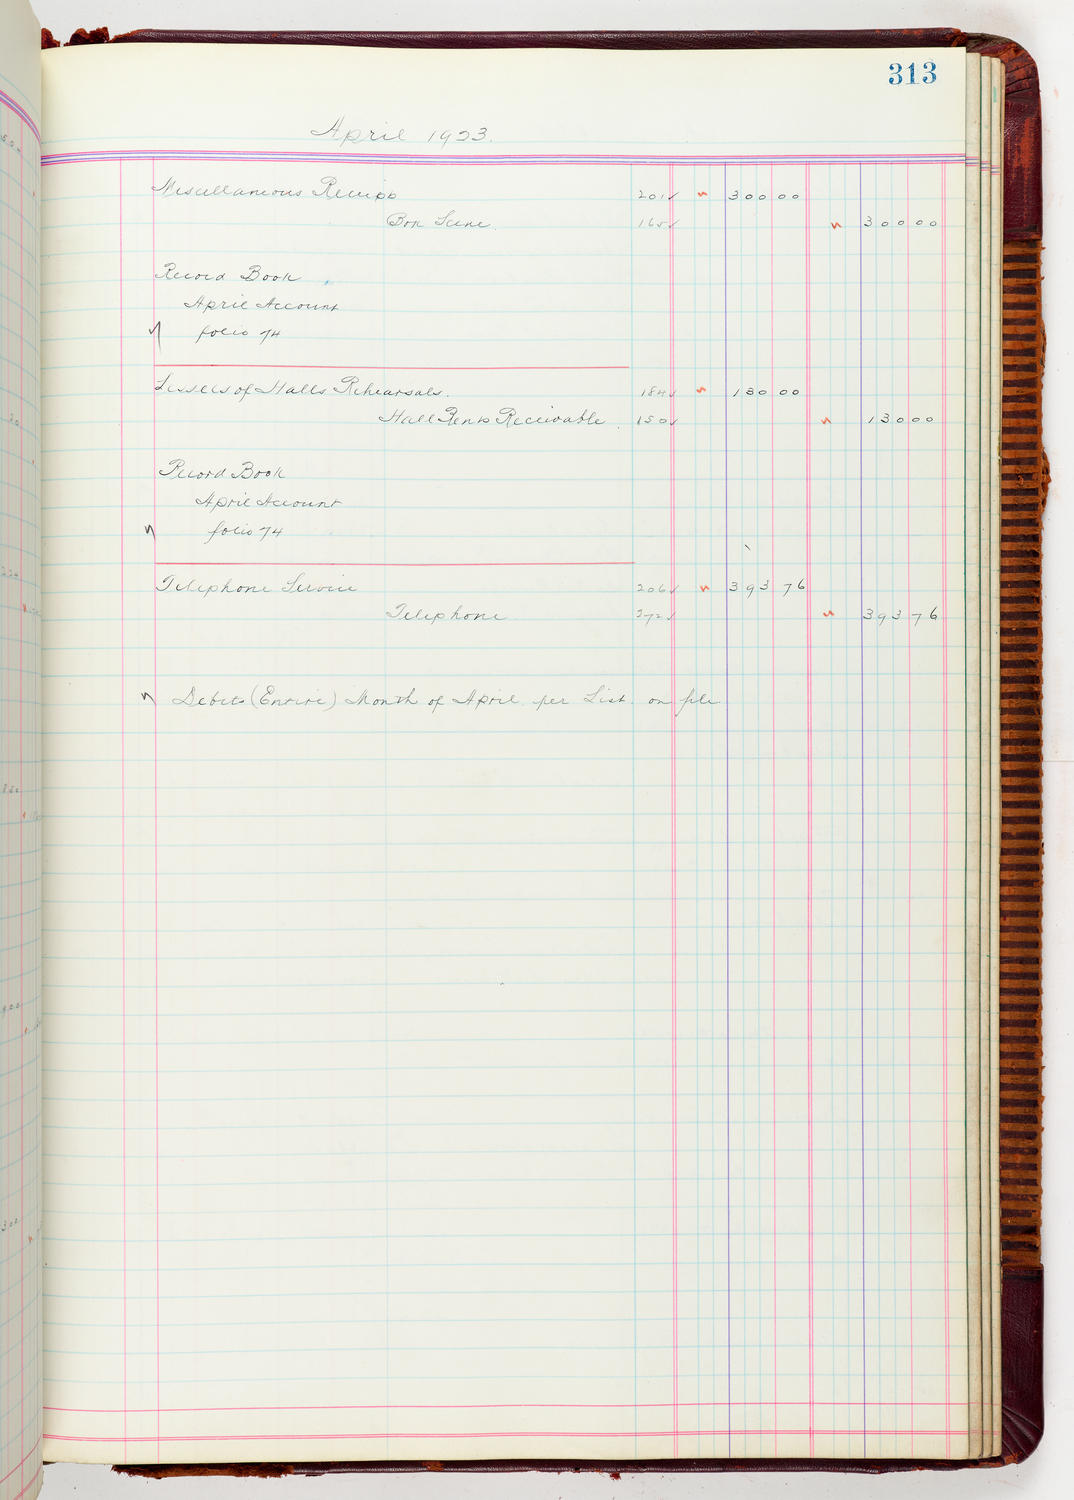 313
April 1923.
Miscellaneous Receipts 201 300 00
Box 165 300 00
Record Book
April Account
folio 74
Lessees of Halls Rehearsals. 184 130 00
Hall Rents Receivable 150 130 00
Record Book
April Account
folio 74
Telephone Service 206 393 76
Telephone 272 393 76
Debits (Entire) Month of April per List on file